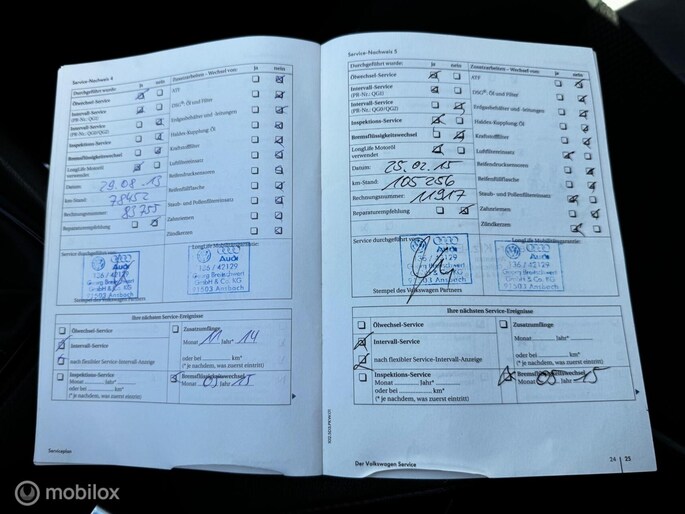 Service-Nachweis 4
Durchgeführt wurde: ja nein
Ölwechsel-Service
Intervall-Service
(PR-Nr.: QG1)
Intervall-Service
(PR-Nr.: QG0/QG2)
Inspektions-Service
Bremsflüssigkeitswechsel
LongLife Motoröl
verwendet
Datum: 29.08.13
km-Stand: 78452
Rechnungsnummer: 83755
Reparaturempfehlung
Zusatzarbeiten – Wechsel von: ja nein
ATF
DSG®-Öl und Filter
Erdgasbehälter und -leitungen
Haldex-Kupplung Öl
Kraftstofffilter
Luftfiltereinsatz
Reifendrucksensoren
Reifenfüllflasche
Staub- und Pollenfiltereinsatz
Zahnriemen
Zündkerzen
Service durchgeführt
LongLife Mobilitätsgarantie:
Audi
136 / 42129
Georg Bretschwert
GmbH & Co. KG
91583 Ansbach
Audi
136 / 42129
Georg Bretschwert
GmbH & Co. KG
91583 Ansbach
Stempel des Volkswagen Partners
Ihre nächsten Service-Ereignisse
Ölwechsel-Service
Intervall-Service
nach flexibler Service-Intervall-Anzeige
Zusatzumfänge
Monat 11 Jahr* 14
oder bei km*
(* je nachdem, was zuerst eintritt)
Inspektions-Service
Monat Jahr*
oder bei km*
(* je nachdem, was zuerst eintritt)
Bremsflüssigkeitswechsel
Monat 03 Jahr 15
Serviceplan
Service-Nachweis 5
Durchgeführt wurde: ja nein
Ölwechsel-Service
Intervall-Service
(PR-Nr.: QG1)
Intervall-Service
(PR-Nr.: QG0/QG2)
Inspektions-Service
Bremsflüssigkeitswechsel
LongLife Motoröl
verwendet
Datum: 25.02.15
km-Stand: 105256
Rechnungsnummer: 11917
Reparaturempfehlung
Zusatzarbeiten – Wechsel von: ja nein
ATF
DSG®-Öl und Filter
Erdgasbehälter und -leitungen
Haldex-Kupplung Öl
Kraftstofffilter
Luftfiltereinsatz
Reifendrucksensoren
Reifenfüllflasche
Staub- und Pollenfiltereinsatz
Zahnriemen
Zündkerzen
Service durchgeführt
LongLife Mobilitätsgarantie:
Audi
136 / 42129
Georg Bretschwert
GmbH & Co. KG
91583 Ansbach
Audi
136 / 42129
Georg Bretschwert
GmbH & Co. KG
91583 Ansbach
Stempel des Volkswagen Partners
Ihre nächsten Service-Ereignisse
Ölwechsel-Service
Intervall-Service
nach flexibler Service-Intervall-Anzeige
Zusatzumfänge
Monat Jahr*
oder bei km*
(* je nachdem, was zuerst eintritt)
Inspektions-Service
Monat Jahr*
oder bei km*
(* je nachdem, was zuerst eintritt)
Bremsflüssigkeitswechsel
Jahr 15
Der Volkswagen Service
24 25
mobilox